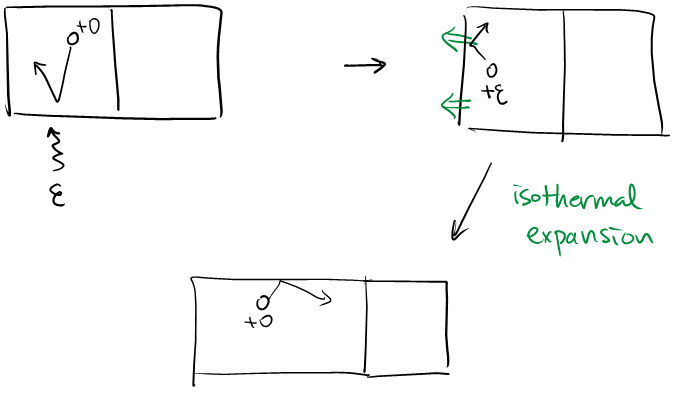 +0
ε
+ε
isothermal
expansion
+0